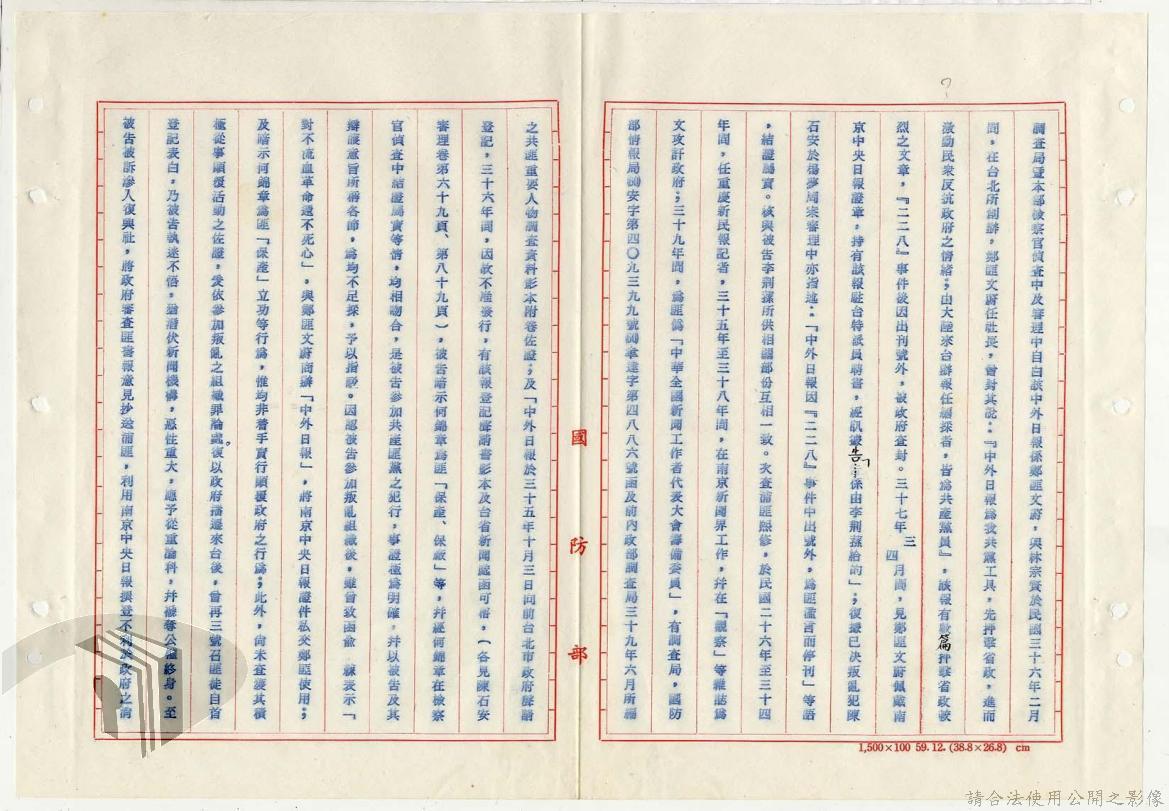 調查局暨本部檢察官偵查中及審理中自白該中外日報係鄭匪文蔚,與林宗賢於民國三十六年二月
間,在台北所創辦,鄭匪文蔚任社長,曾對其說:『中外日報為我共黨工具,先抨擊省政,進而
激動民衆反抗政府之情緒;由大陸來台辦報任編採者,皆為共產黨員』,該報有數篇抨擊省政激
烈之文章,『二二八』事件後因出刊號外,被政府查封。三十七年三四月間,見鄭匪文蔚佩戴南
京中央日報證章,持有該報駐台特派員聘書,經訊據告:係由李荆蓀給的」;復據已決叛亂犯陳
石安於楊夢周案審理中亦指述:「中外日報因『二二八』事件中出號外,為匪讕言而停刊」等語
,結證屬實。核與被告李荆蓀所供相關部份互相一致。次查浦匪熙修,於民國二十六年至三十四
年間,任重慶新民報記者,三十五年至三十八年間,在南京新聞界工作,幷在「觀察」等雜誌為
文攻訐政府;三十九年間,為匪偽「中華全國新聞工作者代表大會籌備委員」,有調查局,國防
部情報局(60)安字第四〇九三九九號(60)章達字第四八八六號函及前內政部調查局三十九年六月所編
國防部
之共匪重要人物調查資料影本附卷佐證;及「中外日報於三十五年十月三日向前台北市政府聲請
登記,三十六年間,因故不准發行,有該報登記聲請書影本及台省新聞處函可稽,(各見陳石安
審理卷第六十九頁、第八十九頁),被告暗示何錦章為匪「保產、保廠」等,幷經何錦章在檢察
官偵查中結證屬實等情,均相吻合,是被告參加共產匪黨之犯行,事證極為明確,幷以被告及其
辯護意旨所稱各節,為均不足採,予以指駁。因認被告參加叛亂組織後,雖曾致函俞 棘表示「
對不流血革命還不死心」,與鄭匪文蔚商辦「中外日報」,將南京中央日報證件私交鄭匪使用;
及暗示何錦章為匪「保產」立功等行為,惟均非着手實行顛覆政府之行為;此外,尚未查獲其積
極從事顛覆活動之佐證,爰依參加叛亂之組織罪論處。復以政府播遷來台後,曾再三號召匪徒自首
登記表白,乃被告執迷不悟,猶潛伏新聞機構,惡性重大,應予從重論科,幷褫奪公權終身。至
被告被訴滲入復興社,將政府審查匪書報意見抄送浦匪,利用南京中央日報撰登不利於政府之消
1,500×100 59. 12. (38.8×26.8) cm
請合法使用公開之影像